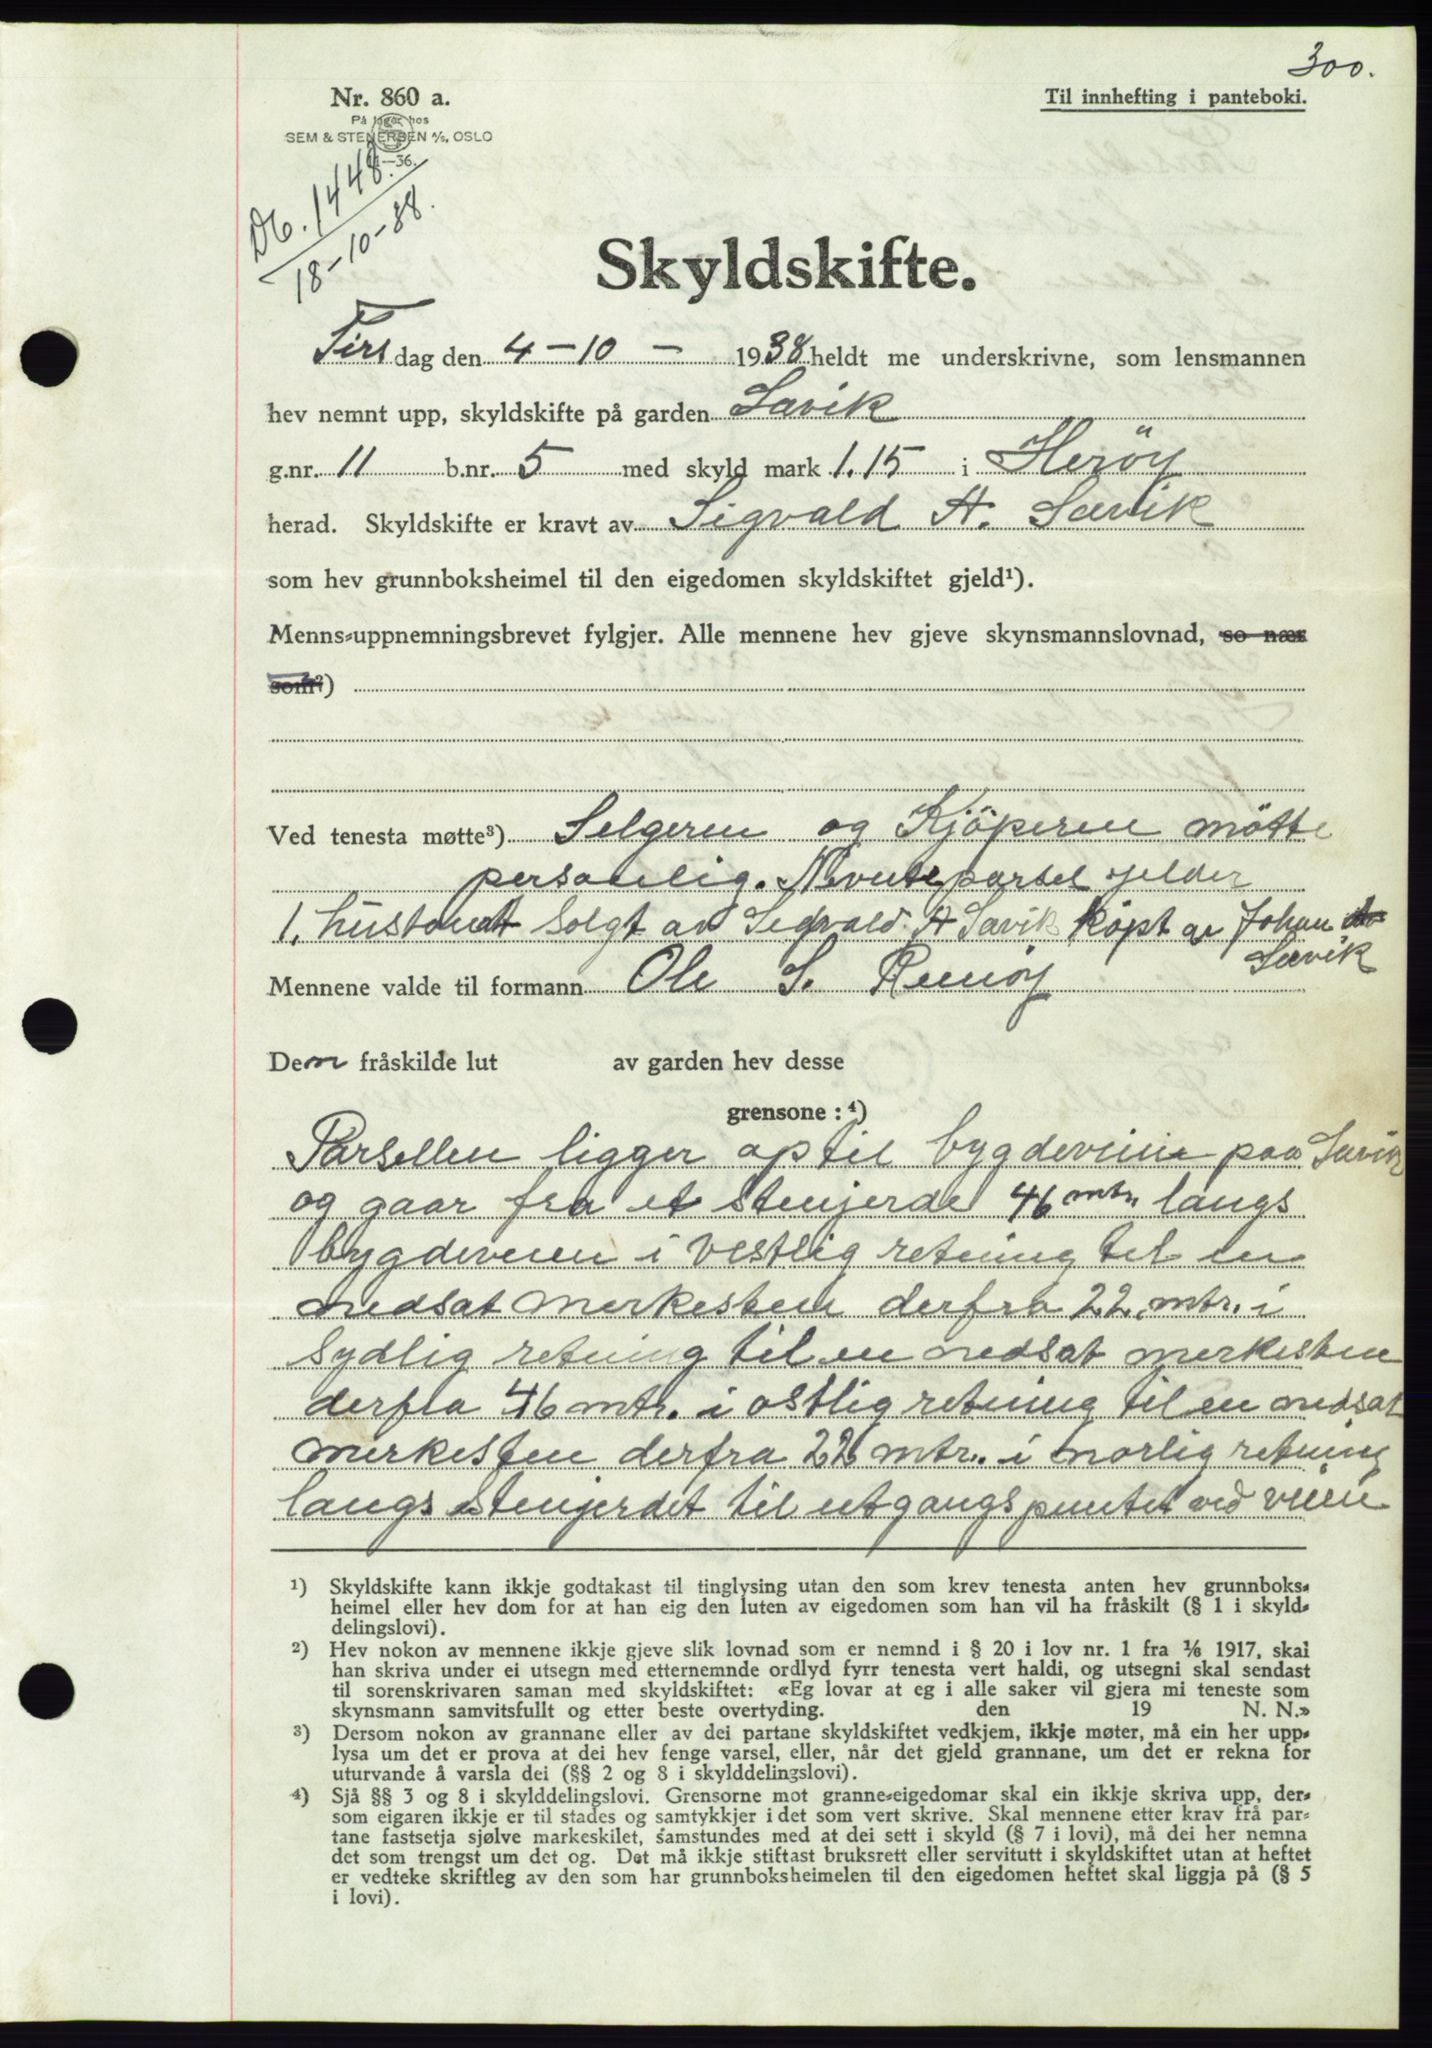 300.
Nr. 860 a.
Til innhefting i panteboki.
På lager hos
SEM & STENERSEN A/S, OSLO
11—36.
Db. 1448.
18-10-38.
Skyldskifte.
Tirsdag den 4-10- 1938 heldt me underskrivne, som lensmannen
hev nemnt upp, skyldskifte på garden Sævik
g.nr. 11 b.nr. 5 med skyld mark 1.15 i Heröy
herad. Skyldskifte er kravt av Sigvald A. Sævik
som hev grunnboksheimel til den eigedomen skyldskiftet gjeld¹).
Menns-uppnemningsbrevet fylgjer. Alle mennene hev gjeve skynsmannslovnad, so nær
som²)
Ved tenesta møtte³) Selgeren og Kjöperen mötte
personlig. Nevnte parsel gjelder
1. hustomt solgt av Sigvald A Sævik köpt av Johan
Sævik
Mennene valde til formann Ole S. Remöy
Den fråskilde lut av garden hev desse
grensone : ⁴)
Parsellen ligger op til bygdeveien paa Sævik
og gaar fra et stenjerde 46 mtr. langs
bygdeveien i vestlig retning til en
nedsat merkesten derfra 22 mtr. i
sydlig retning til en nedsat merkesten
derfra 46 mtr. i ostlig retning til en nedsat
merkesten derfra 22 mtr. i norlig retning
langs stenjerdet til utgangspuntet ved veien
¹) Skyldskifte kann ikkje godtakast til tinglysing utan den som krev tenesta anten hev grunnboks-
heimel eller hev dom for at han eig den luten av eigedomen som han vil ha fråskilt (§ 1 i skyld-
delingslovi).
²) Hev nokon av mennene ikkje gjeve slik lovnad som er nemnd i § 20 i lov nr. 1 fra 1/6 1917, skal
han skriva under ei utsegn med etternemnde ordlyd fyrr tenesta vert haldi, og utsegni skal sendast
til sorenskrivaren saman med skyldskiftet: «Eg lovar at eg i alle saker vil gjera mi teneste som
skynsmann samvitsfullt og etter beste overtyding. den 19 N. N.»
³) Dersom nokon av grannane eller av dei partane skyldskiftet vedkjem, ikkje møter, må ein her upp-
lysa um det er prova at dei hev fenge varsel, eller, når det gjeld grannane, um det er rekna for
uturvande å varsla dei (§§ 2 og 8 i skylddelingslovi).
⁴) Sjå §§ 3 og 8 i skylddelingslovi. Grensorne mot granne-eigedomar skal ein ikkje skriva upp, der-
som eigaren ikkje er til stades og samtykkjer i det som vert skrive. Skal mennene etter krav frå par-
tane fastsetja sjølve markeskilet, samstundes med at dei sett i skyld (§ 7 i lovi), må dei her nemna
det som trengst um det og. Det må ikkje stiftast bruksrett eller servitutt i skyldskiftet utan at heftet
er vedteke skriftleg av den som har grunnboksheimelen til den eigedomen heftet skal liggja på (§ 5
i lovi).